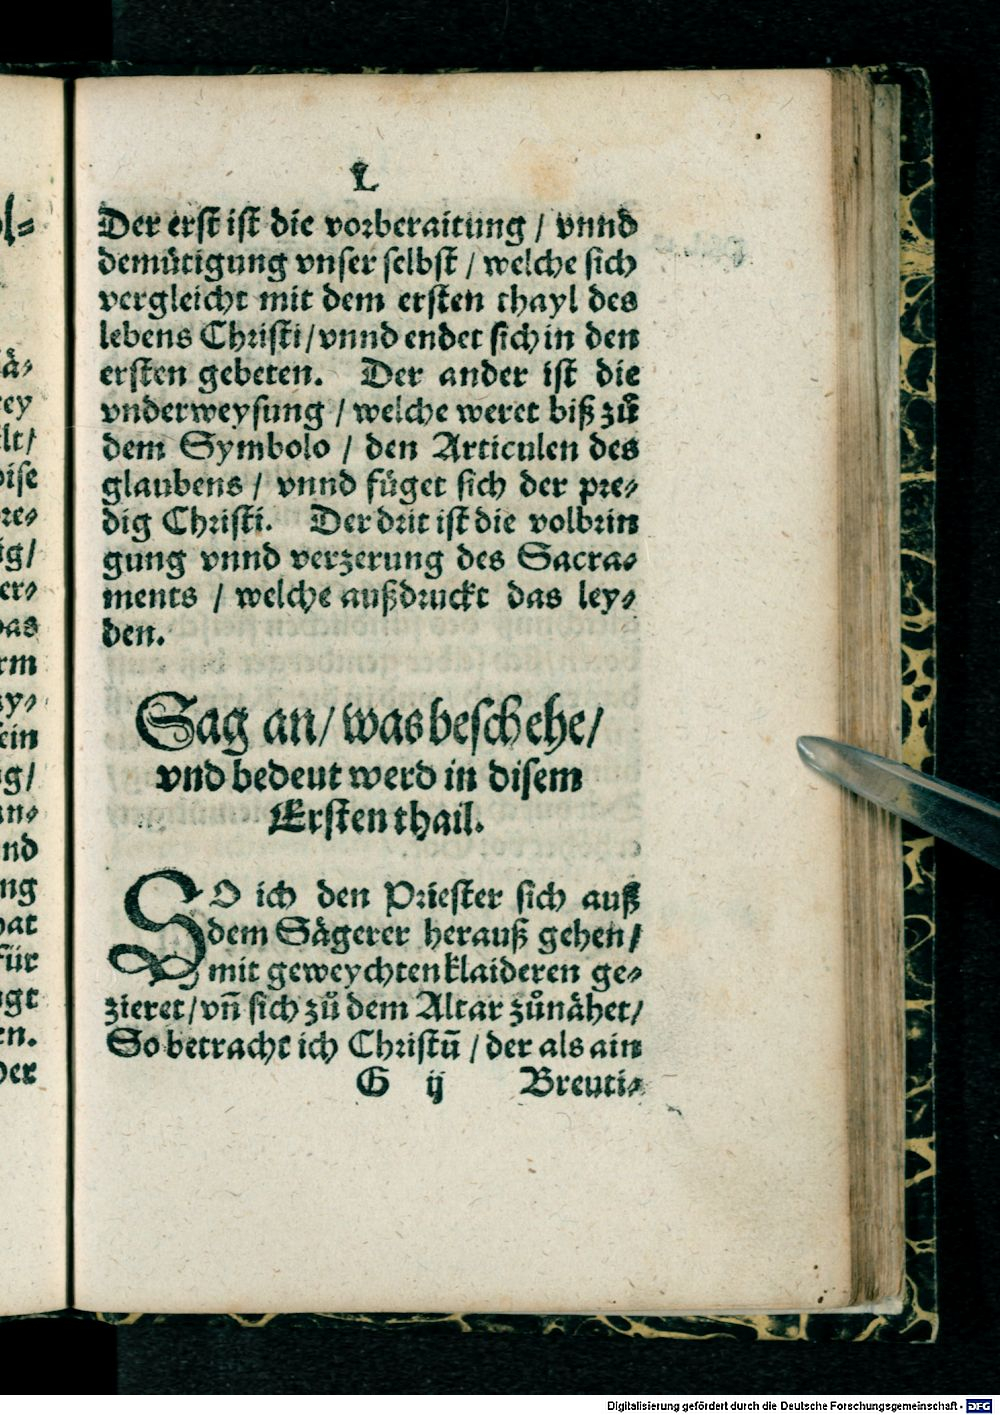 L
Der erst ist die vorberaitung / vnnd
demütigung vnser selbst / welche sich
vergleicht mit dem ersten thayl des
lebens Christi / vnnd endet sich in den
ersten gebeten. Der ander ist die
vnderweysung / welche weret biß zů
dem Symbolo / den Articulen des
glaubens / vnnd füget sich der pre⸗
dig Christi. Der drit ist die volbrin
gung vnnd verzerung des Sacra⸗
ments / welche außdruckt das ley⸗
den.
Sag an / was beschehe /
vnd bedeut werd in disem
Ersten thail.
SO ich den Priester sich auß
dem Sågerer herauß gehen /
mit geweychten klaideren ge⸗
zieret / vñ sich zů dem Altar zůnåhet /
So betracht ich Christū / der als ain
G ij Breuti⸗
Digitalisierung gefördert durch die Deutsche Forschungsgemeinschaft - DFG